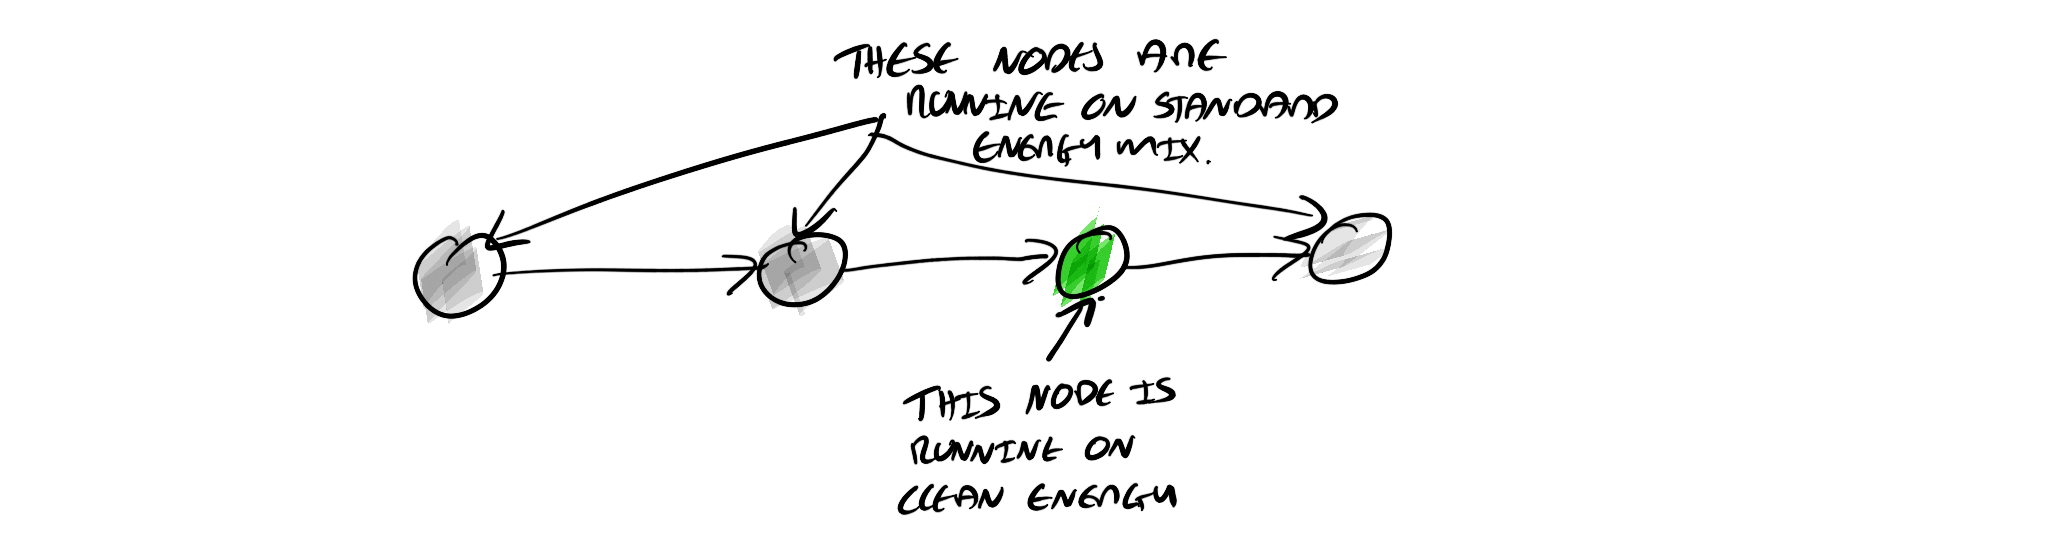 THESE NODES ARE
RUNNINE ON STANDARD
ENERGY MIX.
THIS NODE IS
RUNNINE ON
CLEAN ENERGY